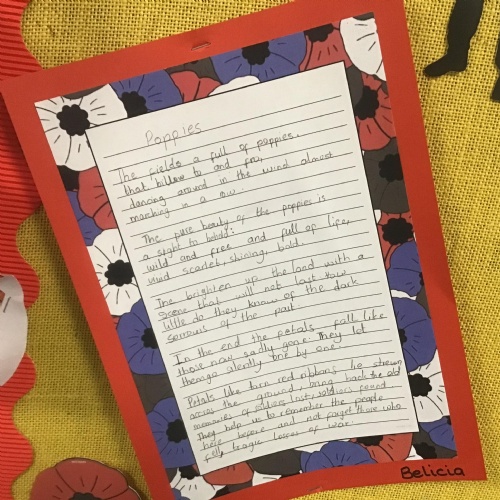 Poppies
The fields a full of poppies.
that billow to and fro,
dancing around in the wind almost
marching in a row.
The pure beauty of the poppies is
a sight to behold:
wild and free and full of life,
vivid scarlet, shining, bold.
The brighten up the land with a
scene that will not last long
little do they know of the dark
sorrows of the past
In the end the petals fall like
those now sadly gone. They let
go silently one by one.
Petals like torn red ribbons lie strewn
across the ground, bring back the old
memories of soldiers lost, soldiers found.
They help us to remember the people
here before and not forget those who
felt tragic losses of war.
Belicia